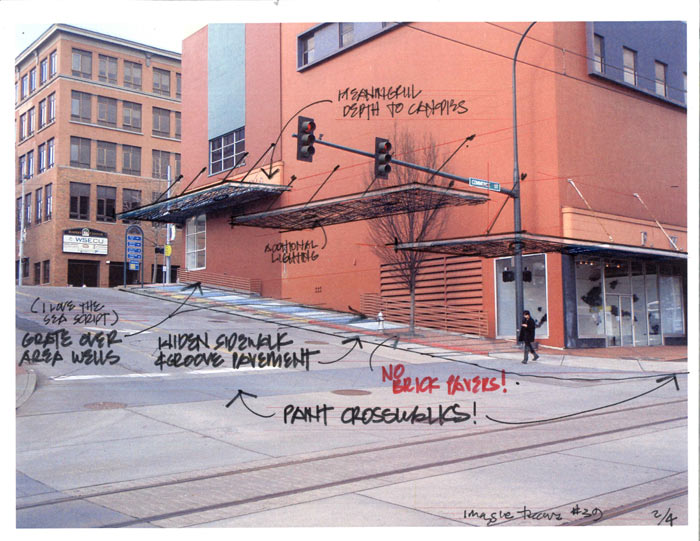 MEANINGFUL
DEPTH TO CANOPIES
COMMERCE ST
ADDITIONAL
LIGHTING
WSECU
(I LOVE THE
SEA SCRIPT)
GRATE OVER
AREA WELLS
WIDEN SIDEWALK
& GROOVE PAVEMENT
NO
BRICK PAVERS!
PAINT CROSSWALKS!
#39
2/4